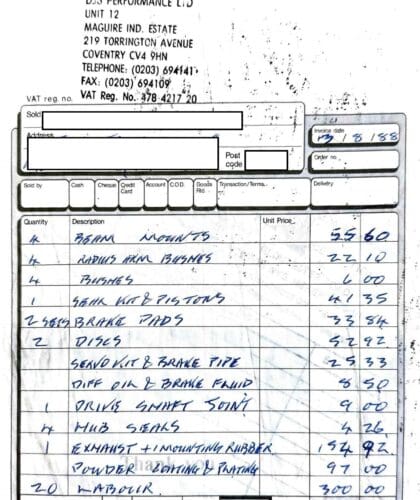 DJS PERFORMANCE LTD
UNIT 12
MAGUIRE IND. ESTATE
219 TORRINGTON AVENUE
COVENTRY CV4 9HN
TELEPHONE: (0203) 694141
FAX: (0203) 694109
VAT reg. no. VAT Reg. No. 478 4217 20
Sold
Address
Post code
Invoice date
3/8/88
Order no.
Sold by Cash Cheque Credit Card Account C.O.D. Goods Rtd Transaction/Terms Delivery
Quantity Description Unit Price
4 BEAM MOUNTS 55 60
4 RADIUS ARM BUSHES 22 10
4 BUSHES 6 00
1 SEAL KIT & PISTONS 41 35
2 SETS BRAKE PADS 33 84
2 DISCS 52 92
SERVO KIT & BRAKE PIPE 25 33
DIFF OIL & BRAKE FLUID 8 50
1 DRIVE SHAFT JOINT 9 00
4 HUB SEALS 4 26
1 EXHAUST + 1 MOUNTING RUBBER 92
POWDER COATING & PLATING 97 00
20 LABOUR 300 00